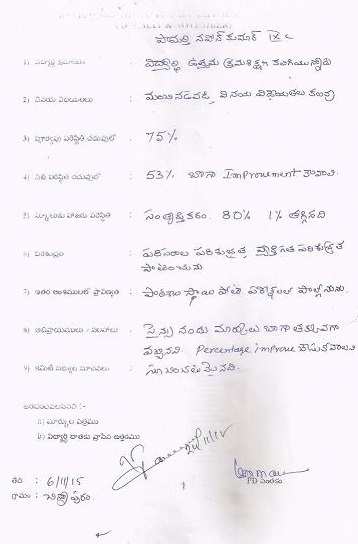 పామర్తి నవీన్ కుమార్ IX C
1) విద్యార్థి క్రమశిక్షణ : విద్యార్థి ఉత్తమ క్రమశిక్షణ కలిగియున్నాడు
2) వినయ విధేయతలు : మంచి నడవడి వినయ విధేయతలు కలవు
3) పూర్వపు పరిస్థితి చదువులో : 75%
4) నేటి పరిస్థితి చదువులో : 53% బాగా Improvement కావాలి
5) స్కూలుకు హాజరు పరిస్థితి : సంతృప్తికరం. 80% 1% తగ్గినది
6) పరిశుభ్రం : పరిసరాల పరిశుభ్రత వ్యక్తిగత పరిశుభ్రత
పాటించును
7) ఇతర అంశములలో ప్రావీణ్యత : పాఠశాల స్థాయి పోటీ పరీక్షలలో పాల్గొనును.
8) అభిప్రాయములు / సలహాలు : సైన్సు నందు మార్కులు బాగా తక్కువగా
వచ్చినవి. Percentage improve చేసుకోవాలి
9) కమిటీ సభ్యుల సూచనలు :
జతపరచవలసినవి :-
a) మార్కుల పత్రము
b) విద్యార్థి దాతకు వ్రాసిన ఉత్తరము
తేది : 6/11/15
గ్రామం :
PD సంతకం